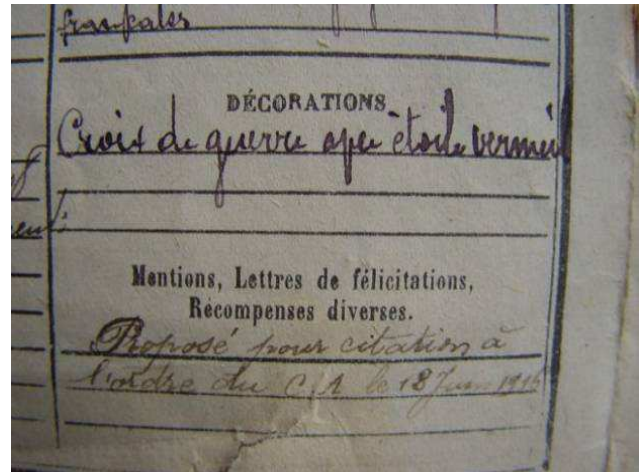 DÉCORATIONS
Croix de guerre avec étoile vermeil
Mentions, Lettres de félicitations,
Récompenses diverses.
Proposé pour citation à
l'ordre du C.A le 18 Juin